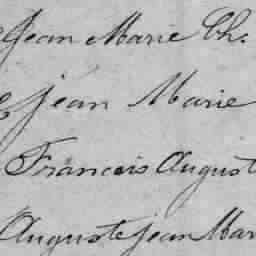 Jean Marie Ch.
Jean Marie
Francois August
Auguste Jean Mar